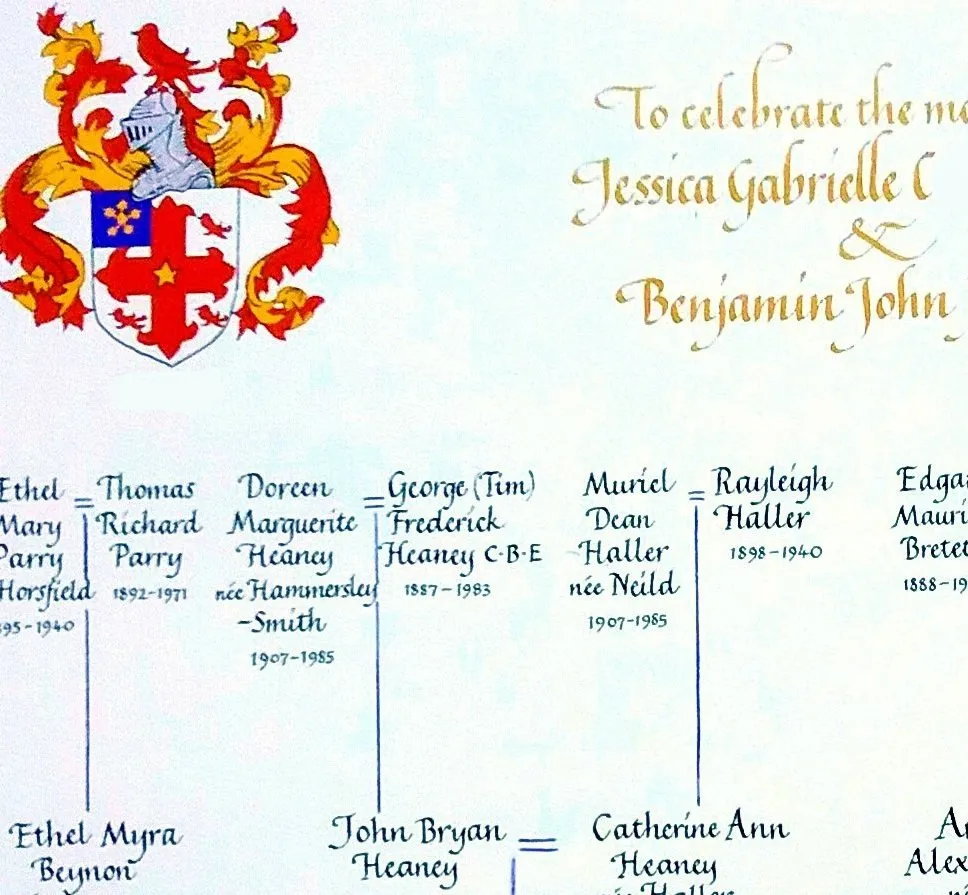 To celebrate the
Jessica Gabrielle
&
Benjamin John
Ethel
Mary
Parry
Horsfield
95-1940
=
Thomas
Richard
Parry
1892-1971
Doreen
Marguerite
Heaney
née Hammersley
-Smith
1907-1985
=
George (Tim)
Frederick
Heaney C·B·E
1887-1983
Muriel
Dean
Haller
née Neild
1907-1985
=
Rayleigh
Haller
1898-1940
1888-19
Ethel Myra
Beynon
John Bryan
Heaney
=
Catherine Ann
Heaney
née Haller